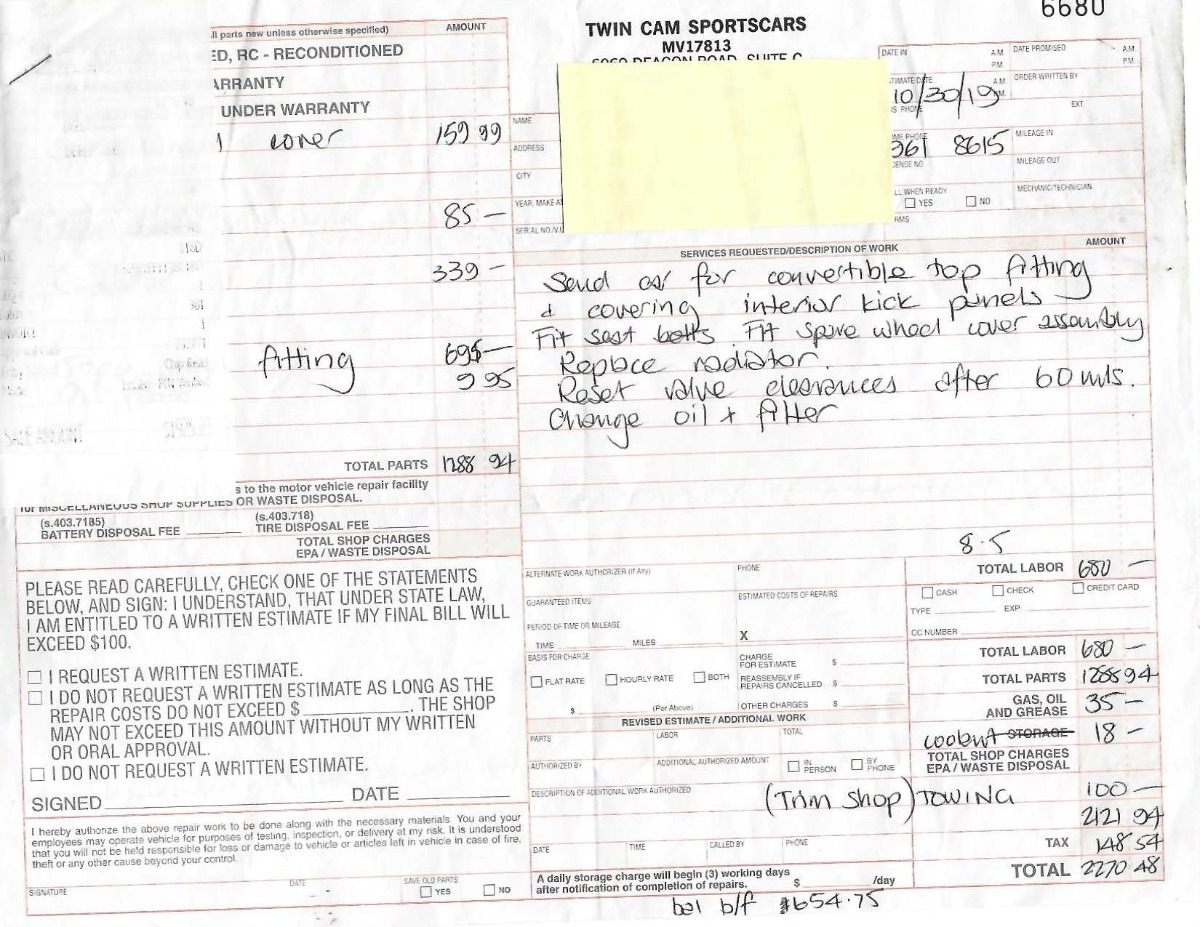 6680
ll parts new unless otherwise specified) AMOUNT
ED, RC - RECONDITIONED
ARRANTY
UNDER WARRANTY
cover 159 99
85 —
339 —
fitting 695 —
9 95
TOTAL PARTS 1288 94
s to the motor vehicle repair facility
for MISCELLANEOUS SHOP SUPPLIES OR WASTE DISPOSAL.
(s.403.7185) (s.403.718)
BATTERY DISPOSAL FEE TIRE DISPOSAL FEE
TOTAL SHOP CHARGES
EPA / WASTE DISPOSAL
PLEASE READ CAREFULLY, CHECK ONE OF THE STATEMENTS
BELOW, AND SIGN: I UNDERSTAND, THAT UNDER STATE LAW,
I AM ENTITLED TO A WRITTEN ESTIMATE IF MY FINAL BILL WILL
EXCEED $100.
I REQUEST A WRITTEN ESTIMATE.
I DO NOT REQUEST A WRITTEN ESTIMATE AS LONG AS THE
REPAIR COSTS DO NOT EXCEED $ . THE SHOP
MAY NOT EXCEED THIS AMOUNT WITHOUT MY WRITTEN
OR ORAL APPROVAL.
I DO NOT REQUEST A WRITTEN ESTIMATE.
SIGNED DATE
I hereby authorize the above repair work to be done along with the necessary materials. You and your
employees may operate vehicle for purposes of testing, inspection, or delivery at my risk. It is understood
that you will not be held responsible for loss or damage to vehicle or articles left in vehicle in case of fire,
theft or any other cause beyond your control.
SIGNATURE DATE SAVE OLD PARTS
YES NO
TWIN CAM SPORTSCARS
MV17813
6960 DEACON ROAD, SUITE C
DATE IN A.M. P.M. DATE PROMISED A.M. P.M.
TIMATE DATE A.M. ORDER WRITTEN BY
10/30/19
S. PHONE EXT.
NAME
ME PHONE MILEAGE IN
361 8615
ADDRESS
ENSE NO. MILEAGE OUT
CITY
LL WHEN READY MECHANIC/TECHNICIAN
YES NO
YEAR, MAKE A
RMS
SERIAL NO./V.I.
SERVICES REQUESTED/DESCRIPTION OF WORK AMOUNT
Send car for convertible top fitting
+ covering interior kick panels
Fit seat belts. Fit spare wheel cover assembly
Replace radiator.
Reset valve clearances after 60 mls.
Change oil + filter
8.5
TOTAL LABOR 680 —
ALTERNATE WORK AUTHORIZER (If Any) PHONE
CASH CHECK CREDIT CARD
GUARANTEED ITEMS ESTIMATED COSTS OF REPAIRS
TYPE EXP
PERIOD OF TIME OR MILEAGE
TIME MILES X
CC NUMBER
BASIS FOR CHARGE
FLAT RATE HOURLY RATE BOTH
$ (Per Above)
CHARGE FOR ESTIMATE $
REASSEMBLY IF REPAIRS CANCELLED $
OTHER CHARGES $
TOTAL LABOR 680 —
TOTAL PARTS 1288 94
GAS, OIL AND GREASE 35 —
REVISED ESTIMATE / ADDITIONAL WORK
PARTS LABOR TOTAL
coolant STORAGE 18 —
TOTAL SHOP CHARGES
EPA / WASTE DISPOSAL
AUTHORIZED BY ADDITIONAL AUTHORIZED AMOUNT IN PERSON BY PHONE
DESCRIPTION OF ADDITIONAL WORK AUTHORIZED
(Trim Shop) TOWING 100 —
2121 94
DATE TIME CALLED BY PHONE
TAX 148 54
TOTAL 2270 48
A daily storage charge will begin (3) working days
after notification of completion of repairs. $ /day
bal b/f $654.75